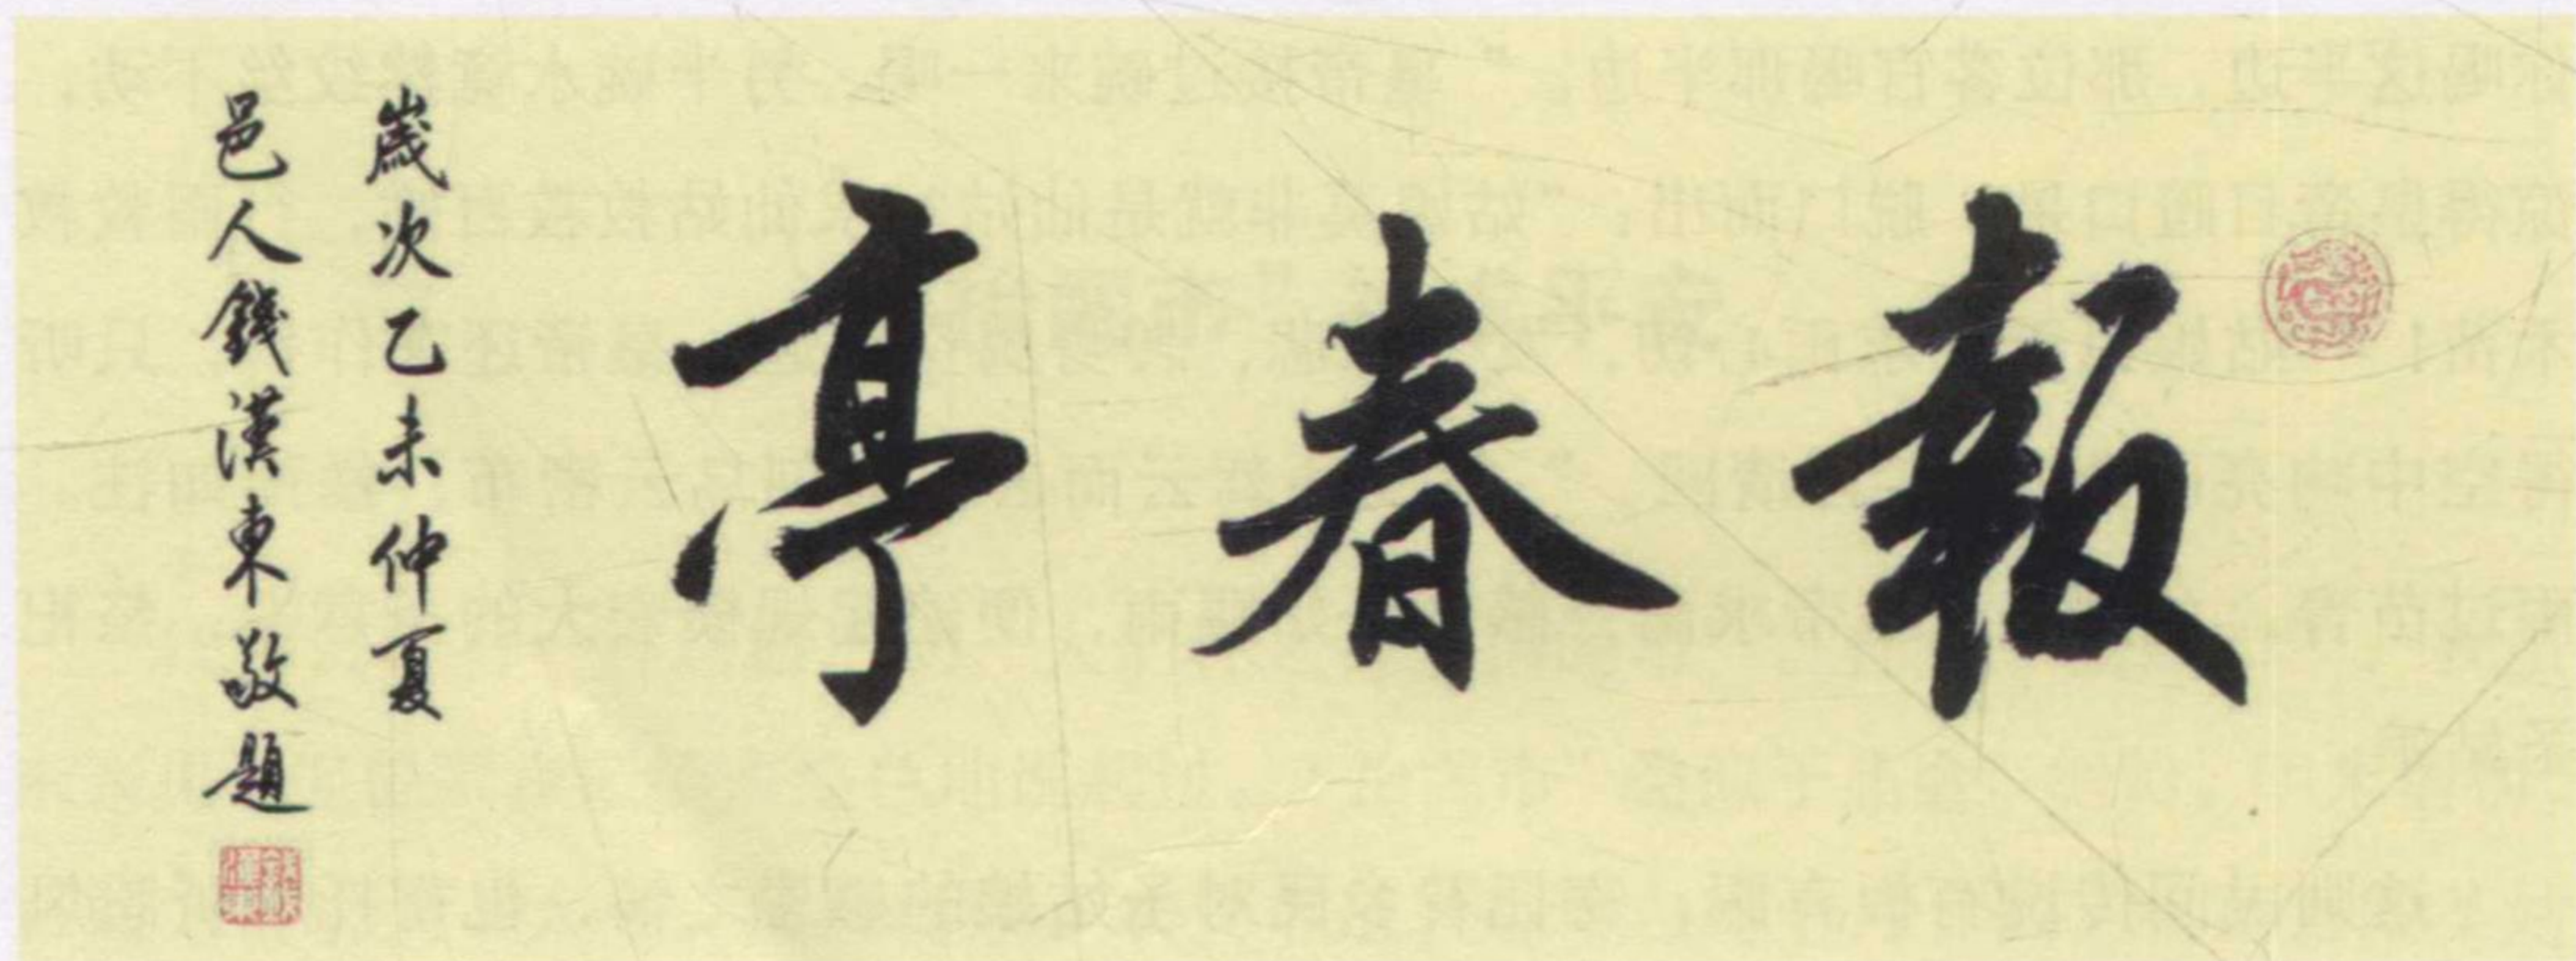 報春亭
歲次乙未仲夏
邑人錢漢東敬題